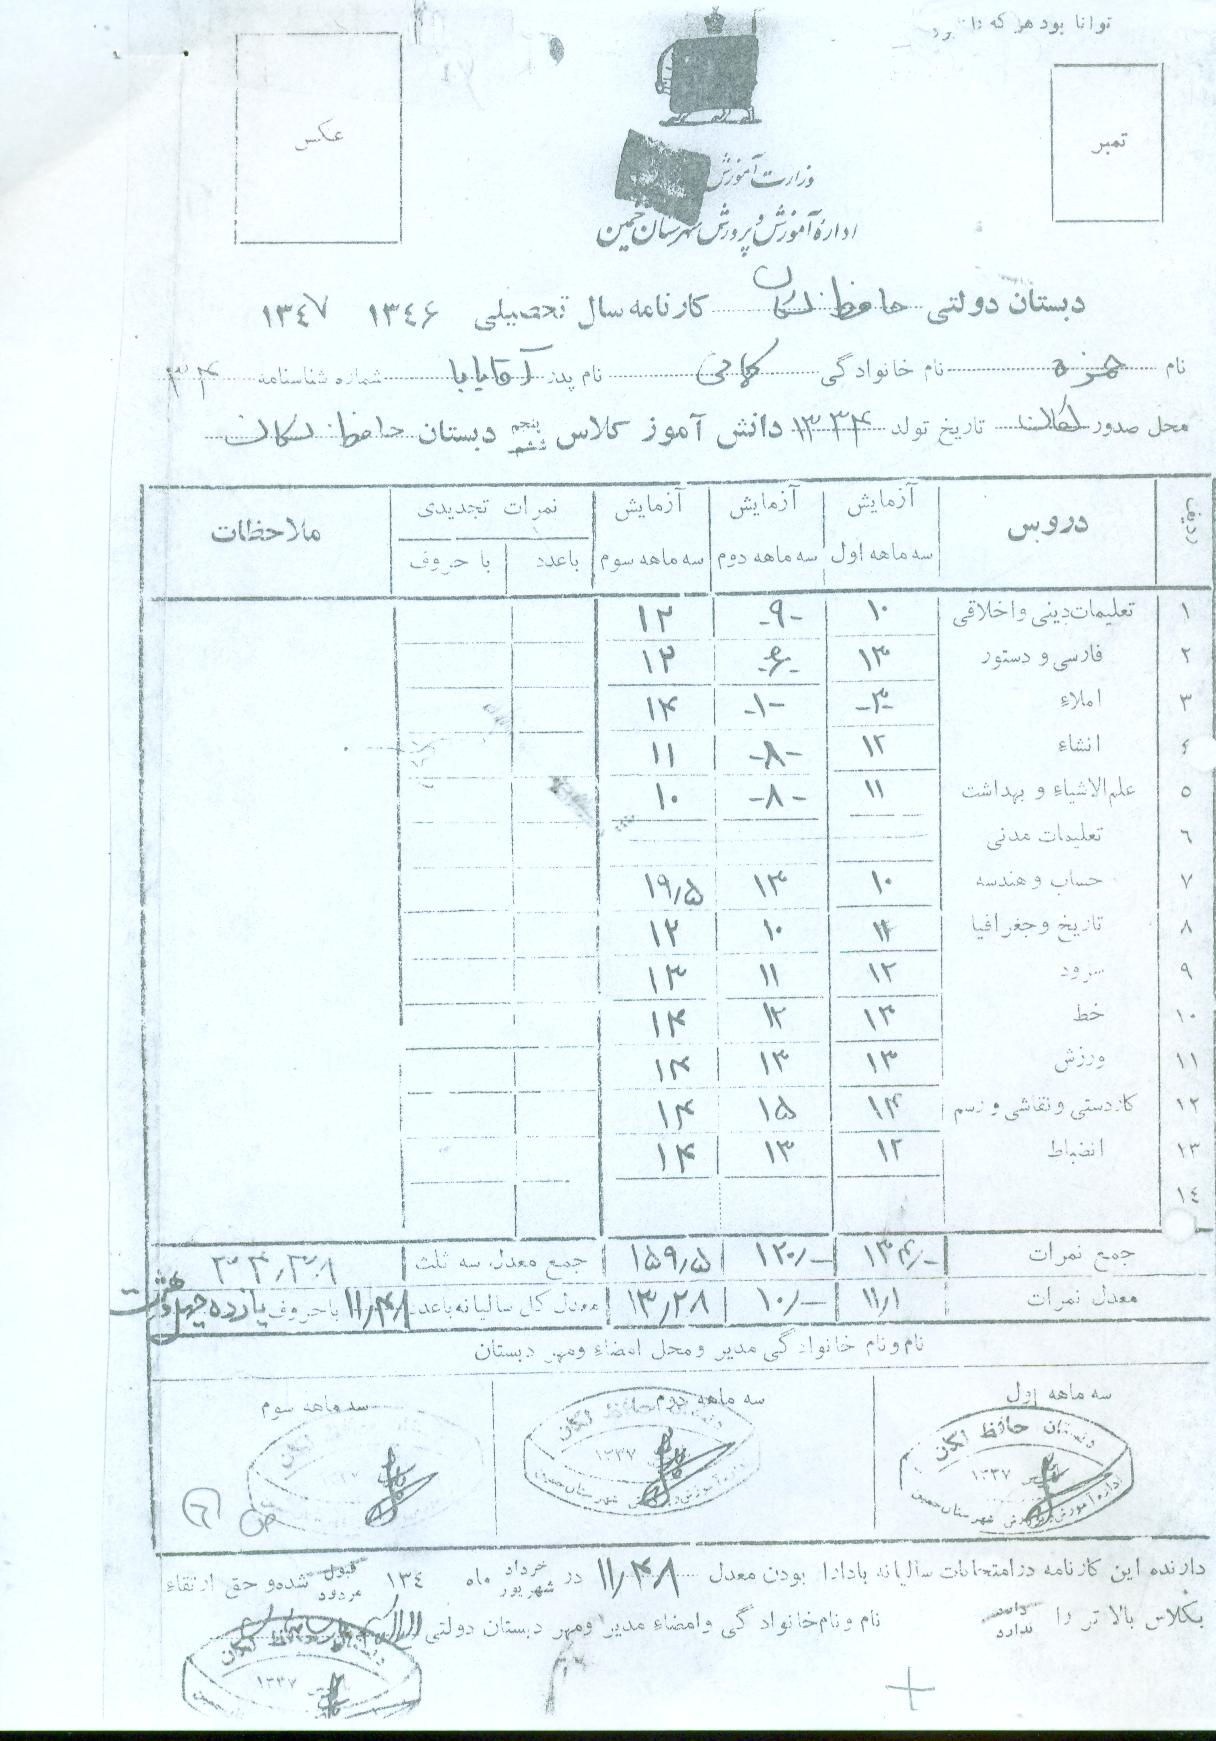 توانا بود هر که دا
تمبر
عکس
وزارت آموزش
اداره آموزش و پرورش شهرستان خمین
دبستان دولتی حافظ لکان کارنامه سال تحصیلی ۱۳۴۶ ۱۳۴۷
نام حمزه نام خانوادگی نام پدر آقابابا شماره شناسنامه ۳۴
محل صدور لکان تاریخ تولد ۱۳۳۴ دانش آموز کلاس پنجم ششم دبستان حافظ لکان
ردیف دروس آزمایش سه ماهه اول آزمایش سه ماهه دوم آزمایش سه ماهه سوم نمرات تجدیدی باعدد با حروف ملاحظات
۱ تعلیمات دینی و اخلاقی ۱۰ -۹- ۱۲
۲ فارسی و دستور ۱۳ -۶- ۱۳
۳ املاء -۳- -۱- ۱۴
۴ انشاء ۱۲ -۸- ۱۱
۵ علم الاشیاء و بهداشت ۱۱ -۸- ۱۰
۶ تعلیمات مدنی
۷ حساب و هندسه ۱۰ ۱۳ ۱۹٫۵
۸ تاریخ و جغرافیا ۱۰ ۱۲
۹ سرود ۱۲ ۱۱ ۱۳
۱۰ خط ۱۳ ۱۲ ۱۴
۱۱ ورزش ۱۳ ۱۳ ۱۴
۱۲ کاردستی و نقاشی و رسم ۱۴ ۱۵ ۱۴
۱۳ انضباط ۱۲ ۱۳ ۱۴
۱۴
جمع نمرات ۱۳۴/- ۱۲۰/- ۱۵۹٫۵ جمع معدل سه ثلث ۳۴٫۳۸
معدل نمرات ۱۱٫۱ ۱۰/- ۱۳٫۲۸ معدل کل سالیانه باعدد ۱۱٫۴۸ با حروف یازده چهل و هشت
نام و نام خانوادگی مدیر و محل امضاء و مهر دبستان
سه ماهه اول سه ماهه دوم سه ماهه سوم
دبستان حافظ لکان
۱۳۳۷
اداره آموزش و پرورش شهرستان خمین
دبستان حافظ لکان
۱۳۳۷
اداره آموزش و پرورش شهرستان خمین
۱۳۳۷
دارنده این کارنامه در امتحانات سالیانه با دارا بودن معدل ۱۱٫۴۸ در خرداد شهریور ماه ۱۳۴ قبول مردود شده و حق ارتقاء
بکلاس بالاتر را دارد ندارد نام و نام خانوادگی و امضاء مدیر و مهر دبستان دولتی
دبستان حافظ لکان
۱۳۳۷